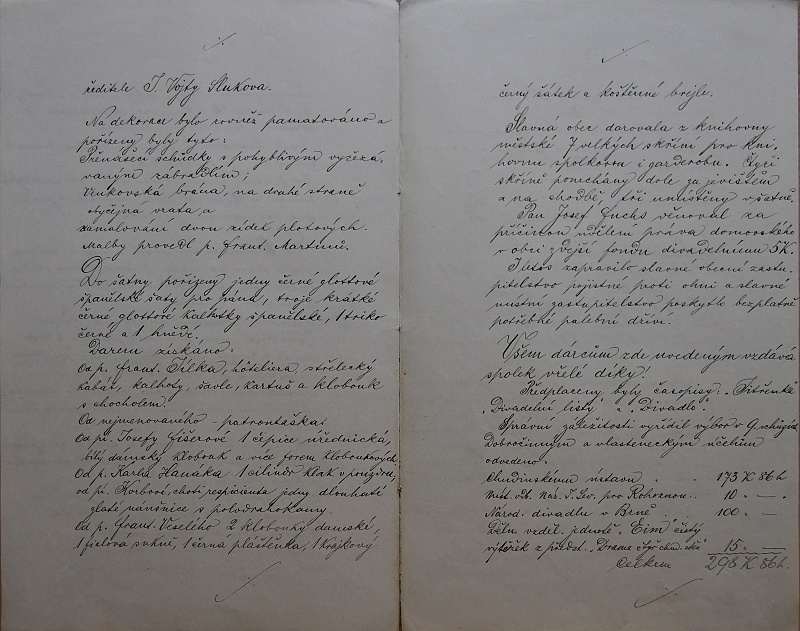 ředitele J. Vojty Slukova.
Na dekorace bylo rovněž pamatováno a
pořízeny byly tyto:
Přenášecí schůdky s pohyblivým vyřezá-
vaným zabradlím;
Venkovská brána, na druhé straně
obyčejná vrata a
zamalování dvou zídek plotových.
Malby provedl p. Frant. Martinů.
Do šatny pořízeny jedny černé glottové
španělské šaty pro pána, troje krátké
černé glottové kalhotky španělské, 1 triko
černé a 1 hnědé.
Darem získáno:
Od p. Frant. Jílka, hôteliera, střelecký
kabát, kalhoty, šavle, kartuš a klobouk
s chocholem.
Od nejmenovaného - patrontáška.
Od pí. Josefy Fišerové 1 čepice úřednická,
bílý dámský klobouk a více forem kloboukových.
Od p. Karla Hanáka 1 cilindr klak v pouzdře,
od pí. Korbové, choti respicienta jedny dlouhé
zlaté náušnice s polodrahokamy.
Od p. Frant. Veselého 2 klobouky damské,
1 fialová sukně, 1 černá pláštěnka, 1 krajkový
černý šátek a koštěnné brejle.
Slavná obec darovala z knihovny
městské 7 velkých skříní pro kni-
hovnu spolkovou i garderobu. Čtyři
skříně ponechány dole za jevištěm
a na chodbě, tři umístěny v šatně.
Pan Josef Fuchs věnoval za
příčinou udělení práva domovského
v obci zdejší fondu divadelnímu 5 K.
I letos zapravilo slavné obecní zastu-
pitelstvo pojistné proti ohni a slavné
místní zastupitelstvo poskytlo bezplatně
potřebné palební dříví.
Všem dárcům zde uvedeným vzdává
spolek vřelé díky!
Předplaceny byly časopisy: "Jitřenka"
"Divadelní listy" a "Divadlo".
Správní záležitosti vyřídil výbor v 9 schůzích
Dobročinným a vlasteneckým účelům
odvedeno:
Chudinskému ústavu . . 173 K 86 h
Míst. odb. Nár. J. Sev. pro Rohoznou . . 10 " — "
Národ. divadlu v Brně . . 100 " —
Děln. vzděl. jednotě "Čin" čistý
výtěžek z předst. "Drama čtyř chud. stěn" 15 " —
Celkem 298 K 86 h.